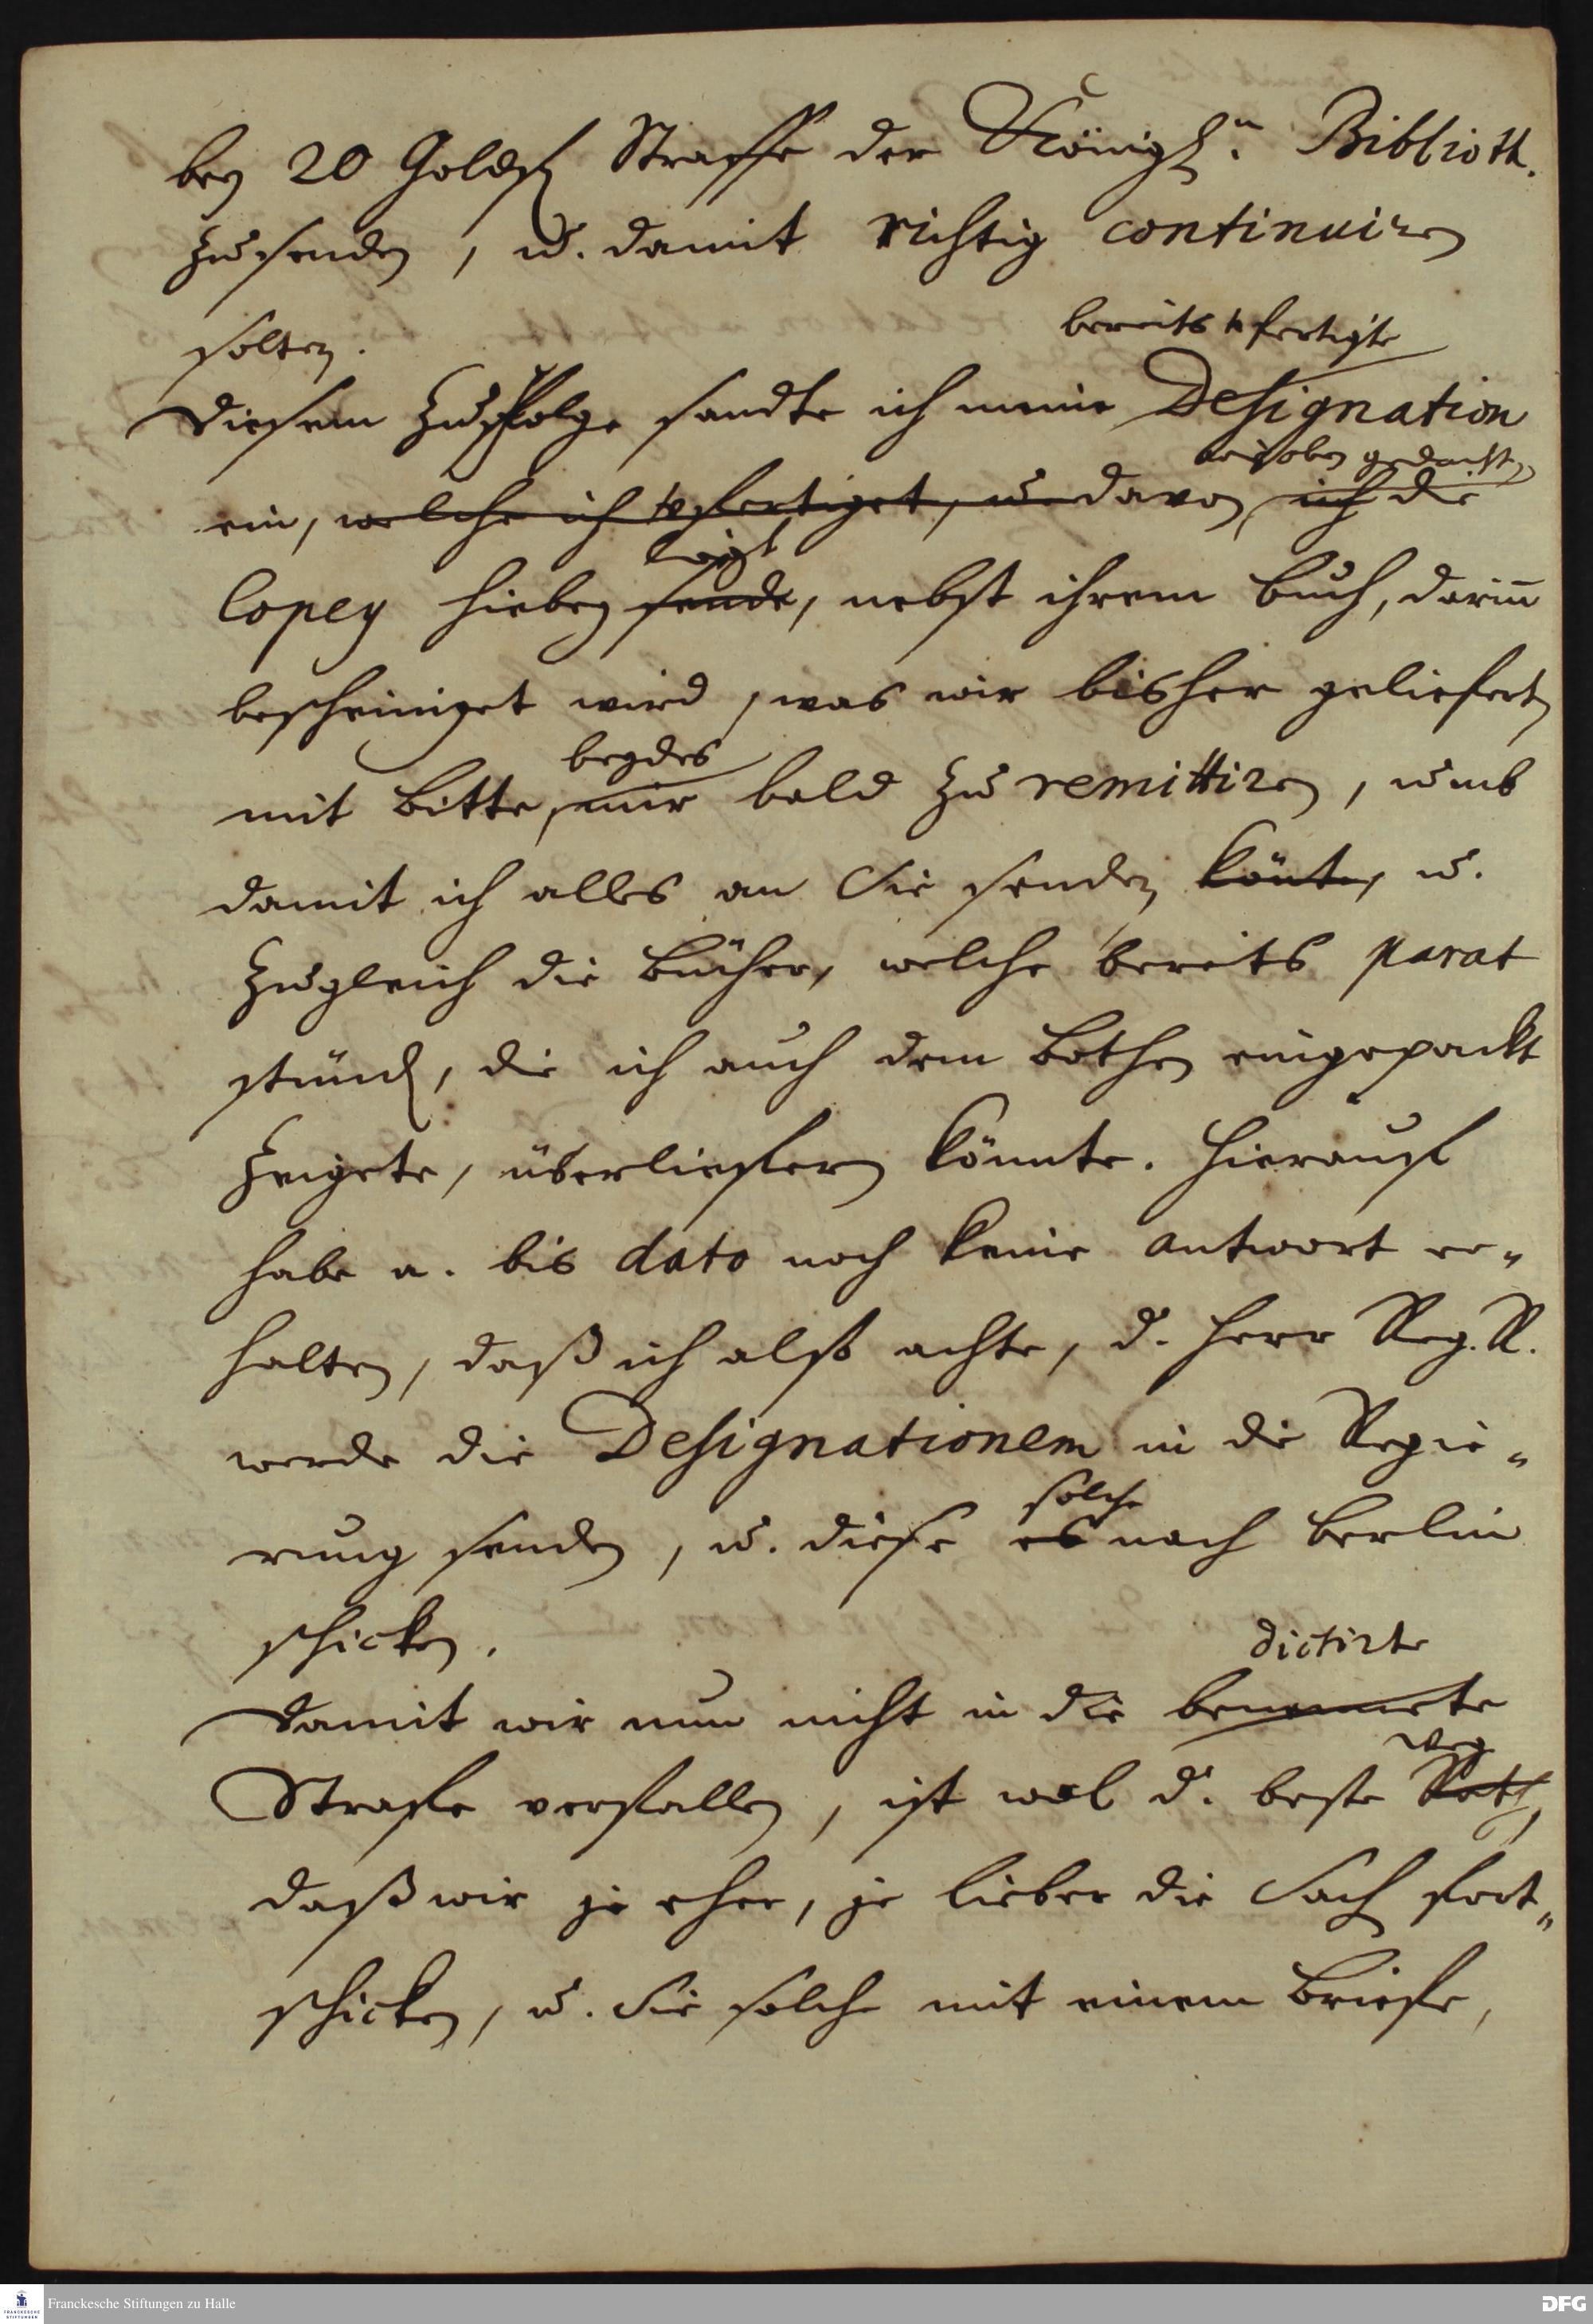 bey 20 Goldfl Straffe der Königl.n Biblioth.
zu senden, u. damit richtig continuiren
solten.
bereits gefertigte
Diesem zu Folge sandte ich meine Designation
wie oben gedacht
ein, welche ich gefertiget, u. davon ich die
liegt
Copey hiebey sende, nebst ihrem Buch, darin̄
bescheiniget wird, was wir bisher geliefert,
beydes
mit Bitte, mir bald zu remittiren, umb
damit ich alles an Sie senden könte, u.
zugleich die Bücher, welche bereits parat
stünden, die ich auch dem Bothen eingepackt
zeigete, überliefern könnte. Hierauf
habe a. bis dato noch keine Antwort er-
halten, daß ich also achte, d. Herr Reg. R.
werde die Designationem in die Regie-
rung senden, u. diese es nach Berlin
solche
schicken.
dictirte
Damit wir nun nicht in die benennete
Weg
Strafe verfallen, ist wol d. beste Rath,
daß wir je eher, je lieber die Sach fort-
schicken, u. Sie solche mit einem Briefe,
Franckesche Stiftungen zu Halle
DFG